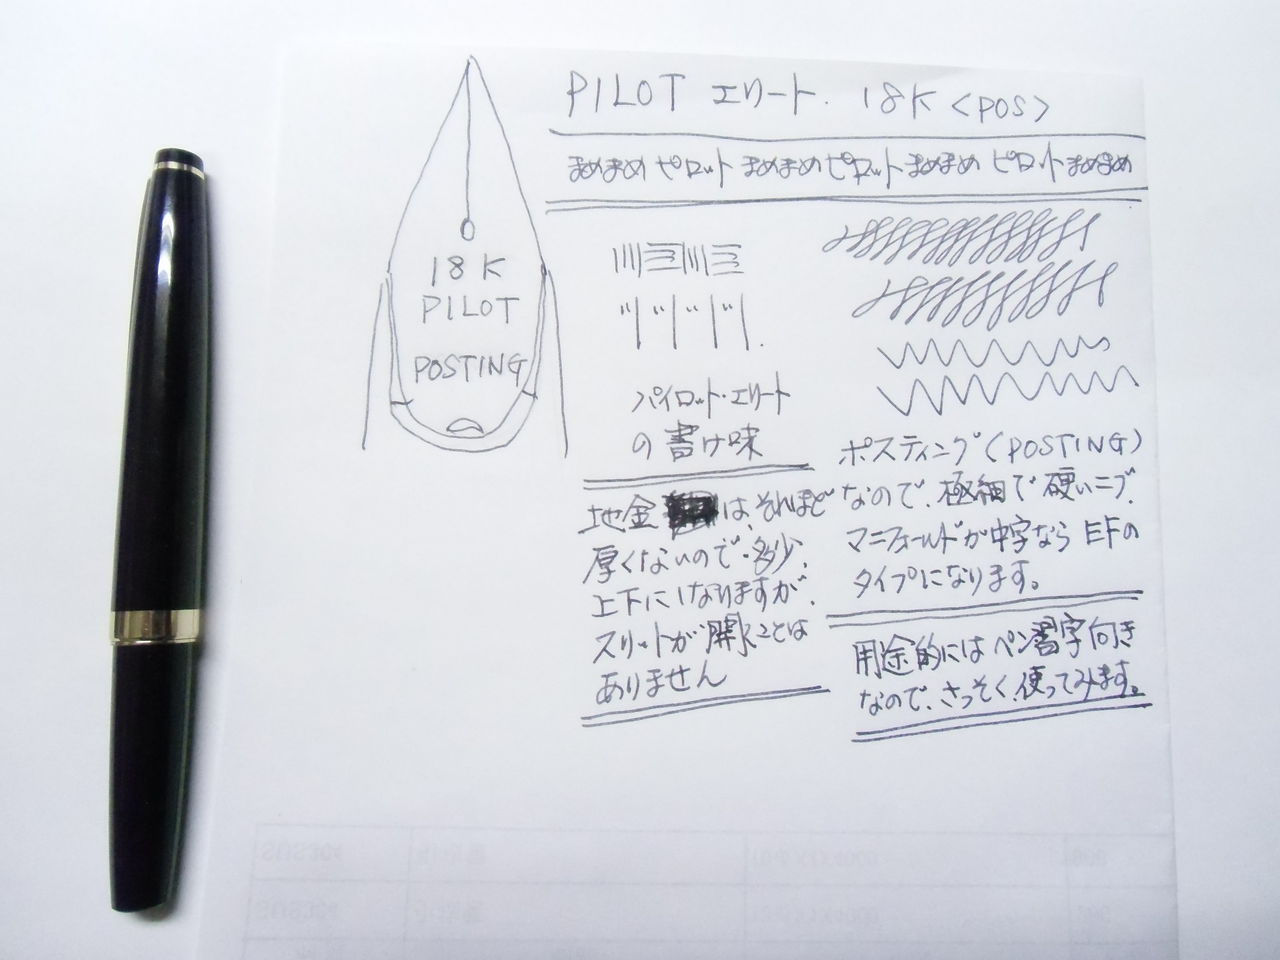 PILOT エリート. 18K <POS>
まめまめ ピロット まめまめ ピロット まめまめ ピロット まめまめ
18K
PILOT
POSTING
パイロット・エリート
の書け味
地金は、それほど
厚くないので・多少、
上下にしなりますが、
スリットが開くことは
ありません
ポスティング(POSTING)
なので、極細で硬いニブ、
マニフォールドが中字なら EFの
タイプになります。
用途的にはペン習字向き
なので、さっそく、使ってみます。